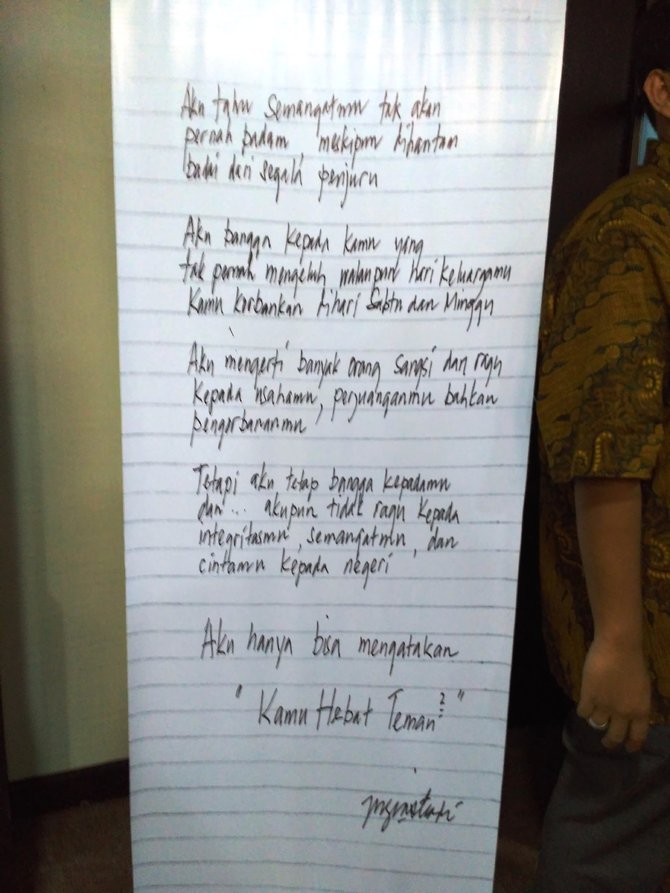 Aku tahu semangatmu tak akan
pernah padam, meskipun dihantam
badai dari segala penjuru
Aku bangga kepada kamu yang
tak pernah mengeluh walaupun hari keluargamu
kamu korbankan dihari Sabtu dan Minggu
Aku mengerti banyak orang sangsi dan ragu
kepada usahamu, perjuanganmu bahkan
pengorbananmu
Tetapi aku tetap bangga kepadamu
dan... akupun tidak ragu kepada
integritasmu, semangatmu, dan
cintamu kepada negeri
Aku hanya bisa mengatakan
"Kamu Hebat Teman²"